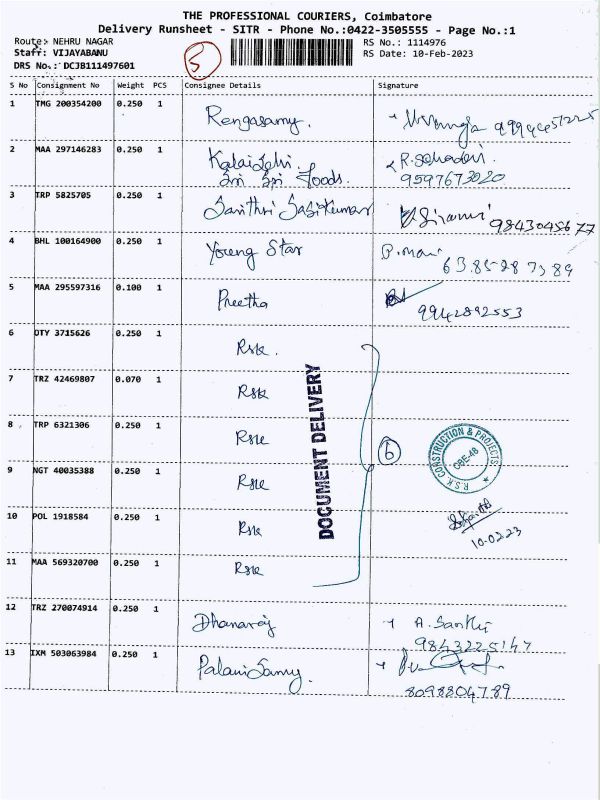 THE PROFESSIONAL COURIERS, Coimbatore
Delivery Runsheet - SITR - Phone No.:0422-3505555 - Page No.:1
Route: NEHRU NAGAR
Staff: VIJAYABANU
DRS No.: DCJB111497601
5
RS No.: 1114976
RS Date: 10-Feb-2023
S No Consignment No Weight PCS Consignee Details Signature
1 TMG 200354200 0.250 1 Rengasamy.
2 MAA 297146283 0.250 1 Kalaiselvi R. Sahadevi
Sri Sri Foods. 9597673020
3 TRP 5825705 0.250 1 Savithri Sasikumar 9843045677
4 BHL 100164900 0.250 1 Young Star P. Mani
63.85287389
5 MAA 295597316 0.100 1 Preetha
9942892553
6 DTY 3715626 0.250 1 Rsk.
7 TRZ 42469807 0.070 1 Rsk
8 TRP 6321306 0.250 1 Rsk
9 NGT 40035388 0.250 1 Rsk
10 POL 1918584 0.250 1 Rsk
11 MAA 569320700 0.250 1 Rsk
DOCUMENT DELIVERY
6
R.S.K CONSTRUCTION & PROJECTS
CBE-48
10-02-23
12 TRZ 270074914 0.250 1 Dhanaraj A. Santhi
9843225147
13 IXM 503063984 0.250 1 Palani Samy.
8098804789